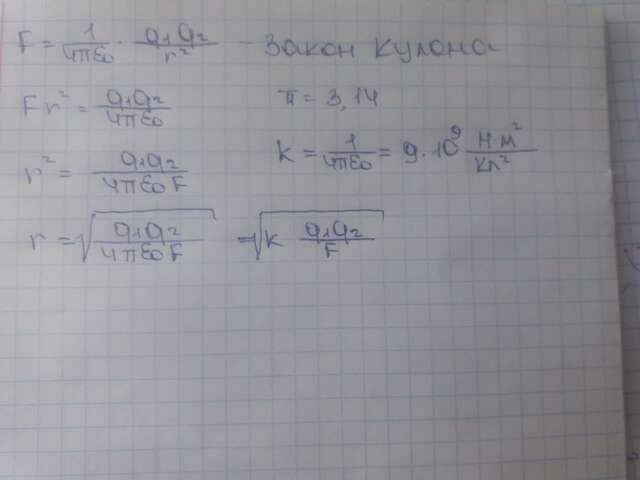 F = 1/4πε0 · q1q2/r² - Закон Кулона
Fr² = q1q2/4πε0
π = 3,14
r² = q1q2/4πε0F
k = 1/4πε0 = 9·10⁹ Н·м²/Кл²
r = √(q1q2/4πε0F) = √(k q1q2/F)